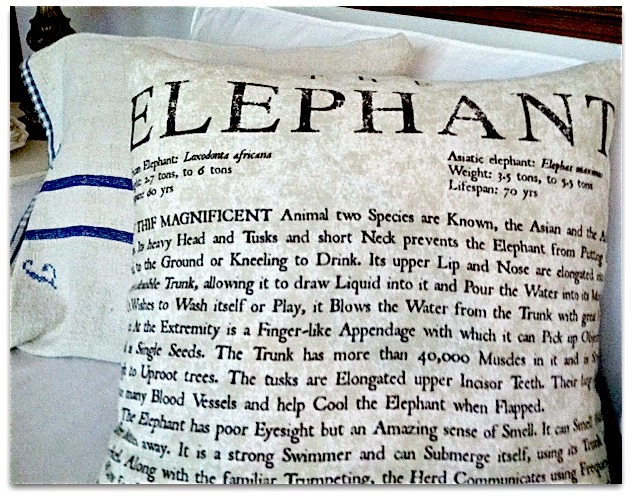 THE
ELEPHANT
Elephant: Loxodonta africana
2.7 tons, to 6 tons
60 yrs
Asiatic elephant: Elephas maximus
Weight: 3.5 tons, to 5.5 tons
Lifespan: 70 yrs
THIF MAGNIFICENT Animal two Species are Known, the Asian and the
Its heavy Head and Tusks and short Neck prevents the Elephant from Putting
to the Ground or Kneeling to Drink. Its upper Lip and Nose are elongated
Trunk, allowing it to draw Liquid into it and Pour the Water into its
Wishes to Wash itself or Play, it Blows the Water from the Trunk with great
At the Extremity is a Finger-like Appendage with which it can Pick up
Single Seeds. The Trunk has more than 40,000 Muscles in it and is
to Uproot trees. The tusks are Elongated upper Incisor Teeth. Their
many Blood Vessels and help Cool the Elephant when Flapped.
The Elephant has poor Eyesight but an Amazing sense of Smell. It can Smell
away. It is a strong Swimmer and can Submerge itself, using its Trunk
Along with the familiar Trumpeting, the Herd Communicates using